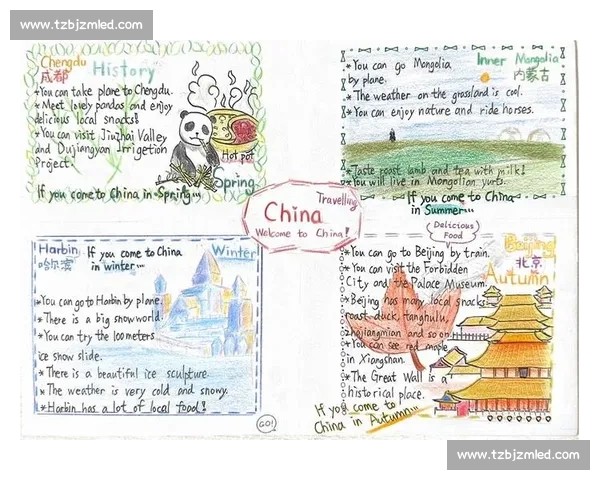 www.tzbjzmled.com
Chengdu
成都
History
*You can take plane to Chengdu.
*Meet lovely pandas and enjoy
delicious local snacks!
*You can visit Jiuzhai Valley
and Dujiangyan Irrigetion
Project.
Hot pot
Spring
If you come to China in Spring...
Inner Mongolia
内蒙古
*You can go Mongolia
by plane.
*The weather on the grassland is cool.
*You can enjoy nature and ride horses.
*Taste roast lamb and tea with milk!
*You will live in Mongolian yurts.
If you come to China
in Summer...
Travelling
China
Welcome to China!
Harbin
哈尔滨
If you come to China
in winter...
Winter
*You can go to Harbin by plane.
*There is a big snow world.
*You can try the 100 meters
ice snow slide.
*There is a beautiful ice sculpture.
*The weather is very cold and snowy.
*Harbin has a lot of local food!
GO!
Delicious
Food
Beijing
北京
Autumn!
*You can go to Beijing by train.
*You can visit the Forbidden
City and the Palace Museum.
*Beijing has many local snacks
roast duck, tanghulu,
zhajiangmian and so on.
*You can see red maple
in Xiangshan.
*The Great Wall is a
historical place.
If you come to
China in Autumn...
www.tzbjzmled.com